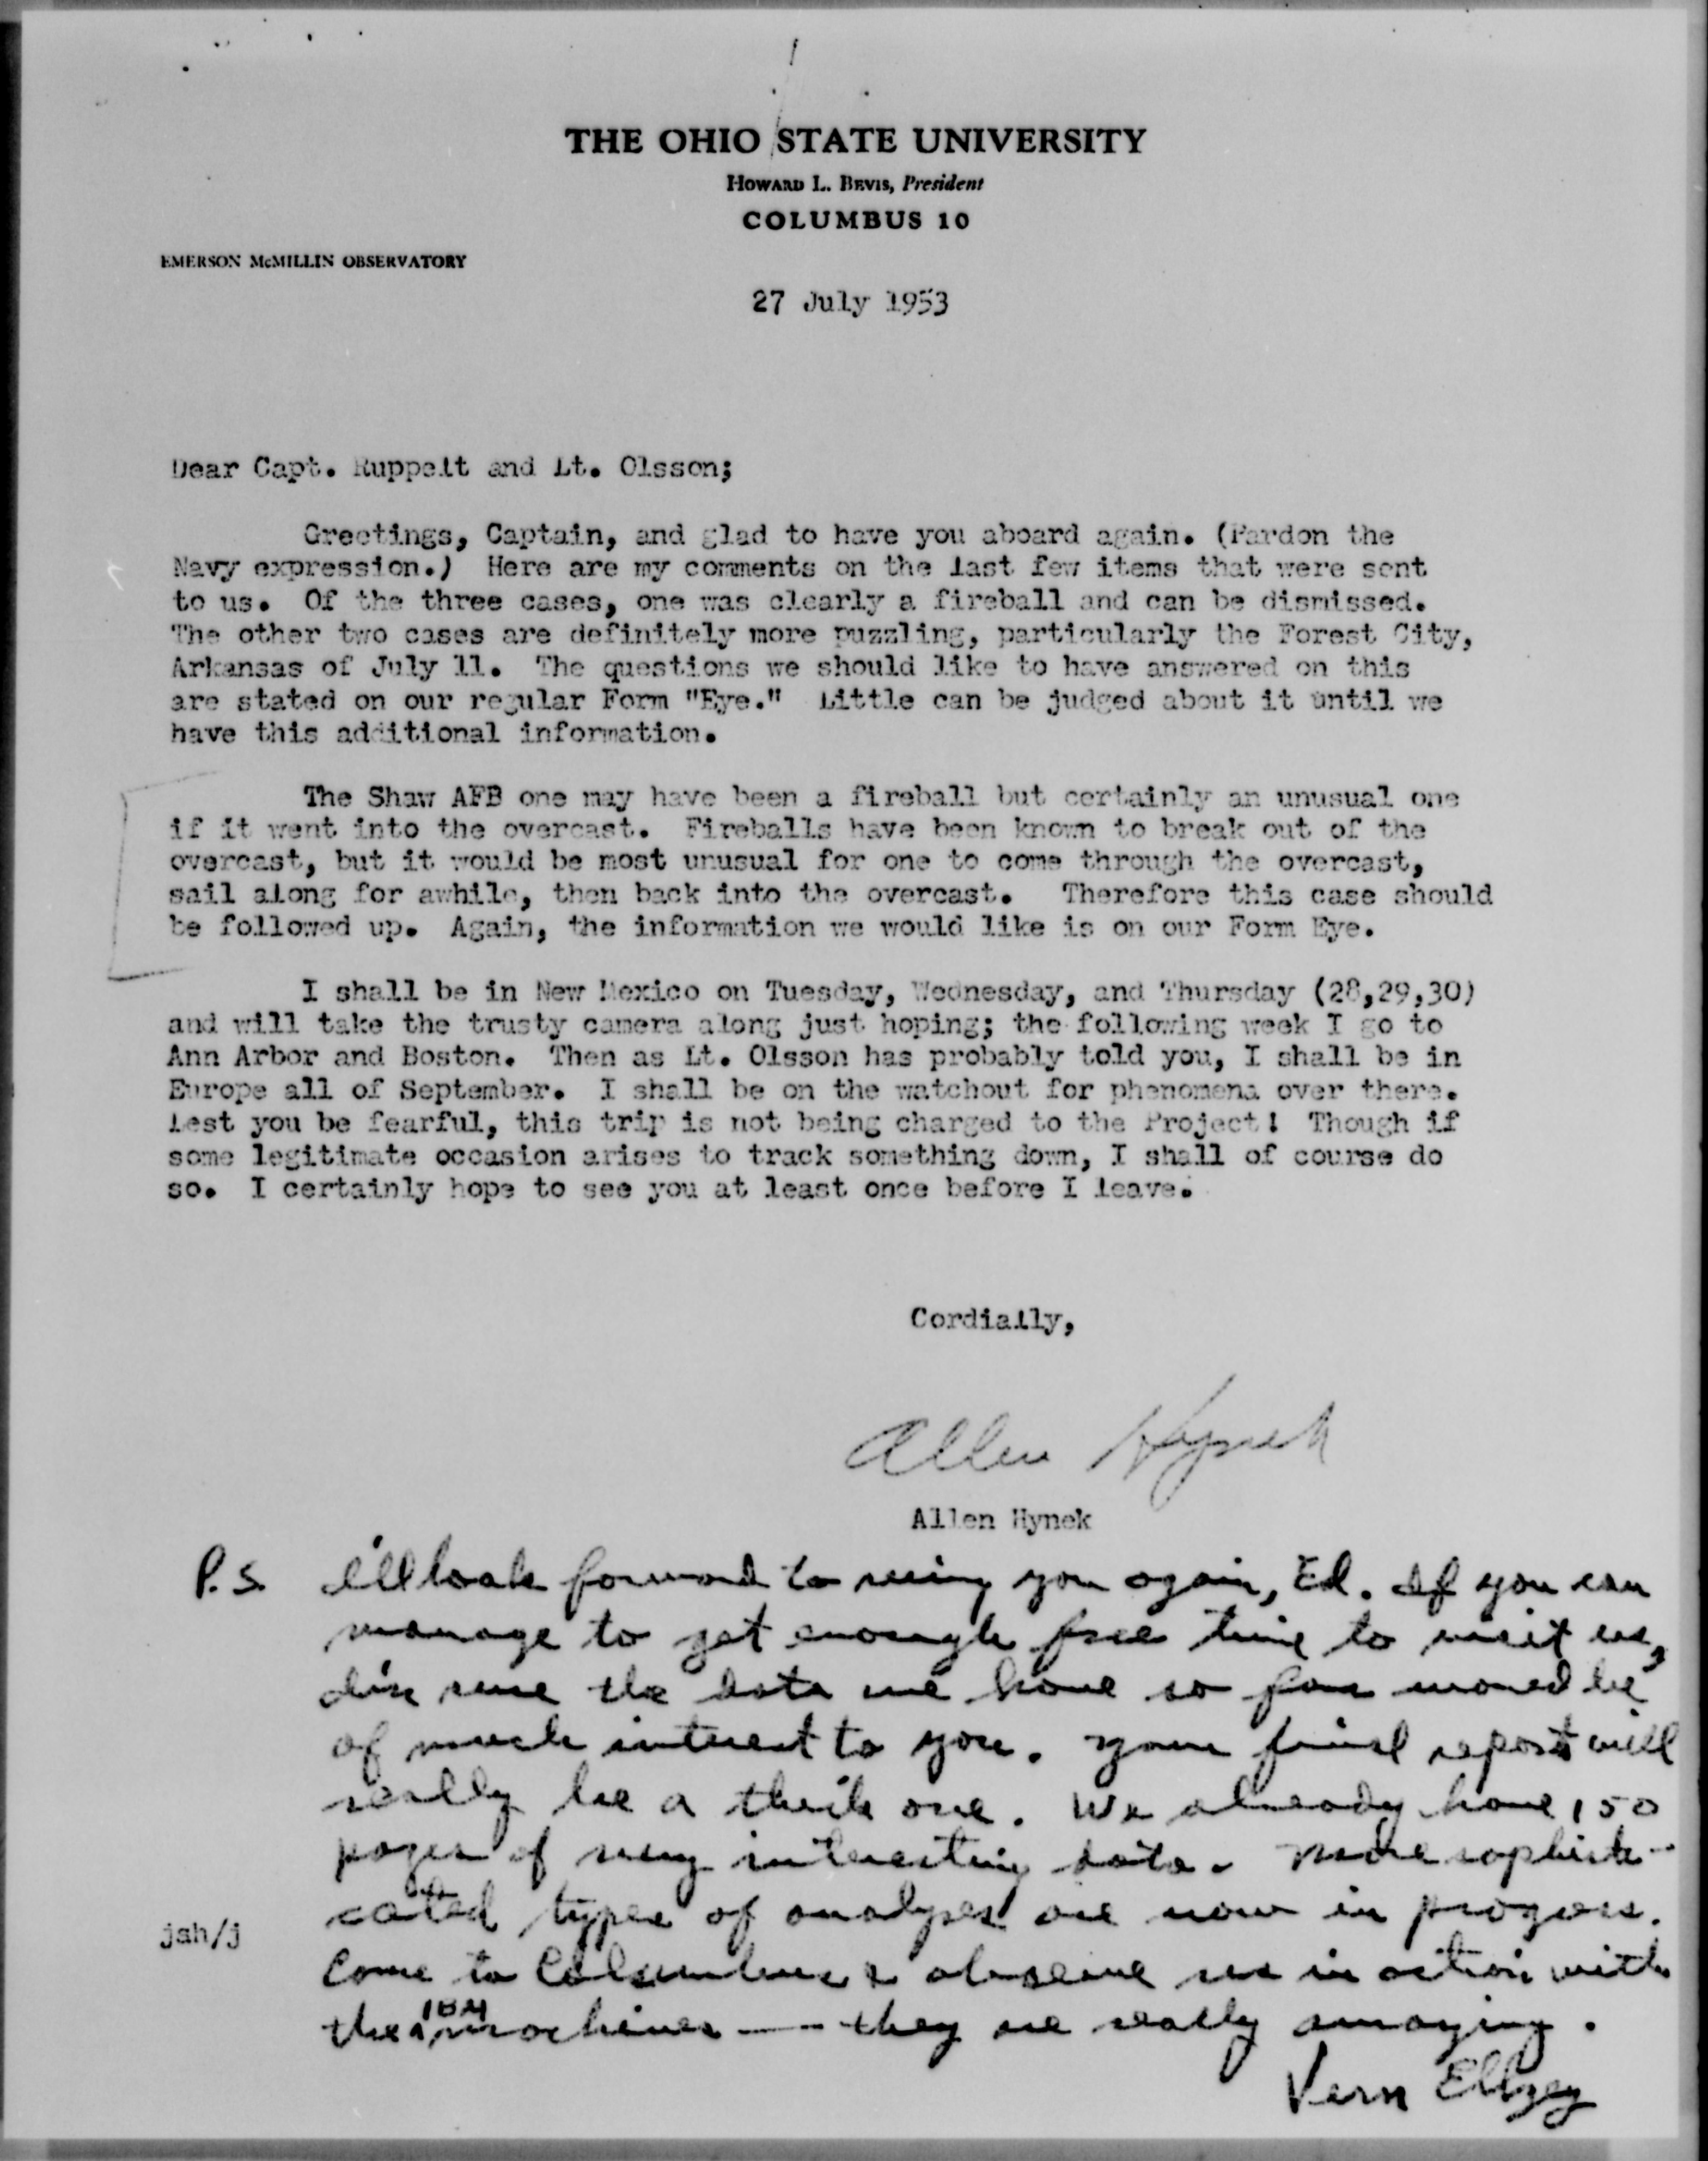 THE OHIO STATE UNIVERSITY
HOWARD L. BEVIS, President
COLUMBUS 10
EMERSON McMILLIN OBSERVATORY
27 July 1953
Dear Capt. Ruppelt and Lt. Olsson;
Greetings, Captain, and glad to have you aboard again. (Pardon the
Navy expression.) Here are my comments on the last few items that were sent
to us. Of the three cases, one was clearly a fireball and can be dismissed.
The other two cases are definitely more puzzling, particularly the Forest City,
Arkansas of July 11. The questions we should like to have answered on this
are stated on our regular Form "Eye." Little can be judged about it until we
have this additional information.
The Shaw AFB one may have been a fireball but certainly an unusual one
if it went into the overcast. Fireballs have been known to break out of the
overcast, but it would be most unusual for one to come through the overcast,
sail along for awhile, then back into the overcast. Therefore this case should
be followed up. Again, the information we would like is on our Form Eye.
I shall be in New Mexico on Tuesday, Wednesday, and Thursday (28,29,30)
and will take the trusty camera along just hoping; the following week I go to
Ann Arbor and Boston. Then as Lt. Olsson has probably told you, I shall be in
Europe all of September. I shall be on the watchout for phenomena over there.
Lest you be fearful, this trip is not being charged to the Project! Though if
some legitimate occasion arises to track something down, I shall of course do
so. I certainly hope to see you at least once before I leave.
Cordially,
Allen Hynek
Allen Hynek
P.S. I'll look forward to seeing you again, Ed. If you can
manage to get enough free time to visit us,
I'm sure the data we have so far would be
of much interest to you. Your final report will
really be a thick one. We already have 150
pages of very interesting data. More sophisti-
cated types of analyses are now in progress.
Come to Columbus & observe us in action with
the IBM machines -- they are really amazing.
Vern
jah/j